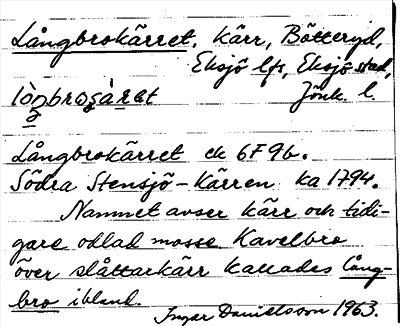 Långbrokärret, kärr, Bötteryd,
Eksjö lfs, Eksjö stad,
Jönk. l.
Långbrokärret ek 6F9b.
Södra Stensjö-Kärren ka 1794.
Namnet avser kärr och tidi-
gare odlad mosse. Kavelbro
över slåttarkärr kallades Lång-
bro ibland.
Ingar Danielsson 1963.